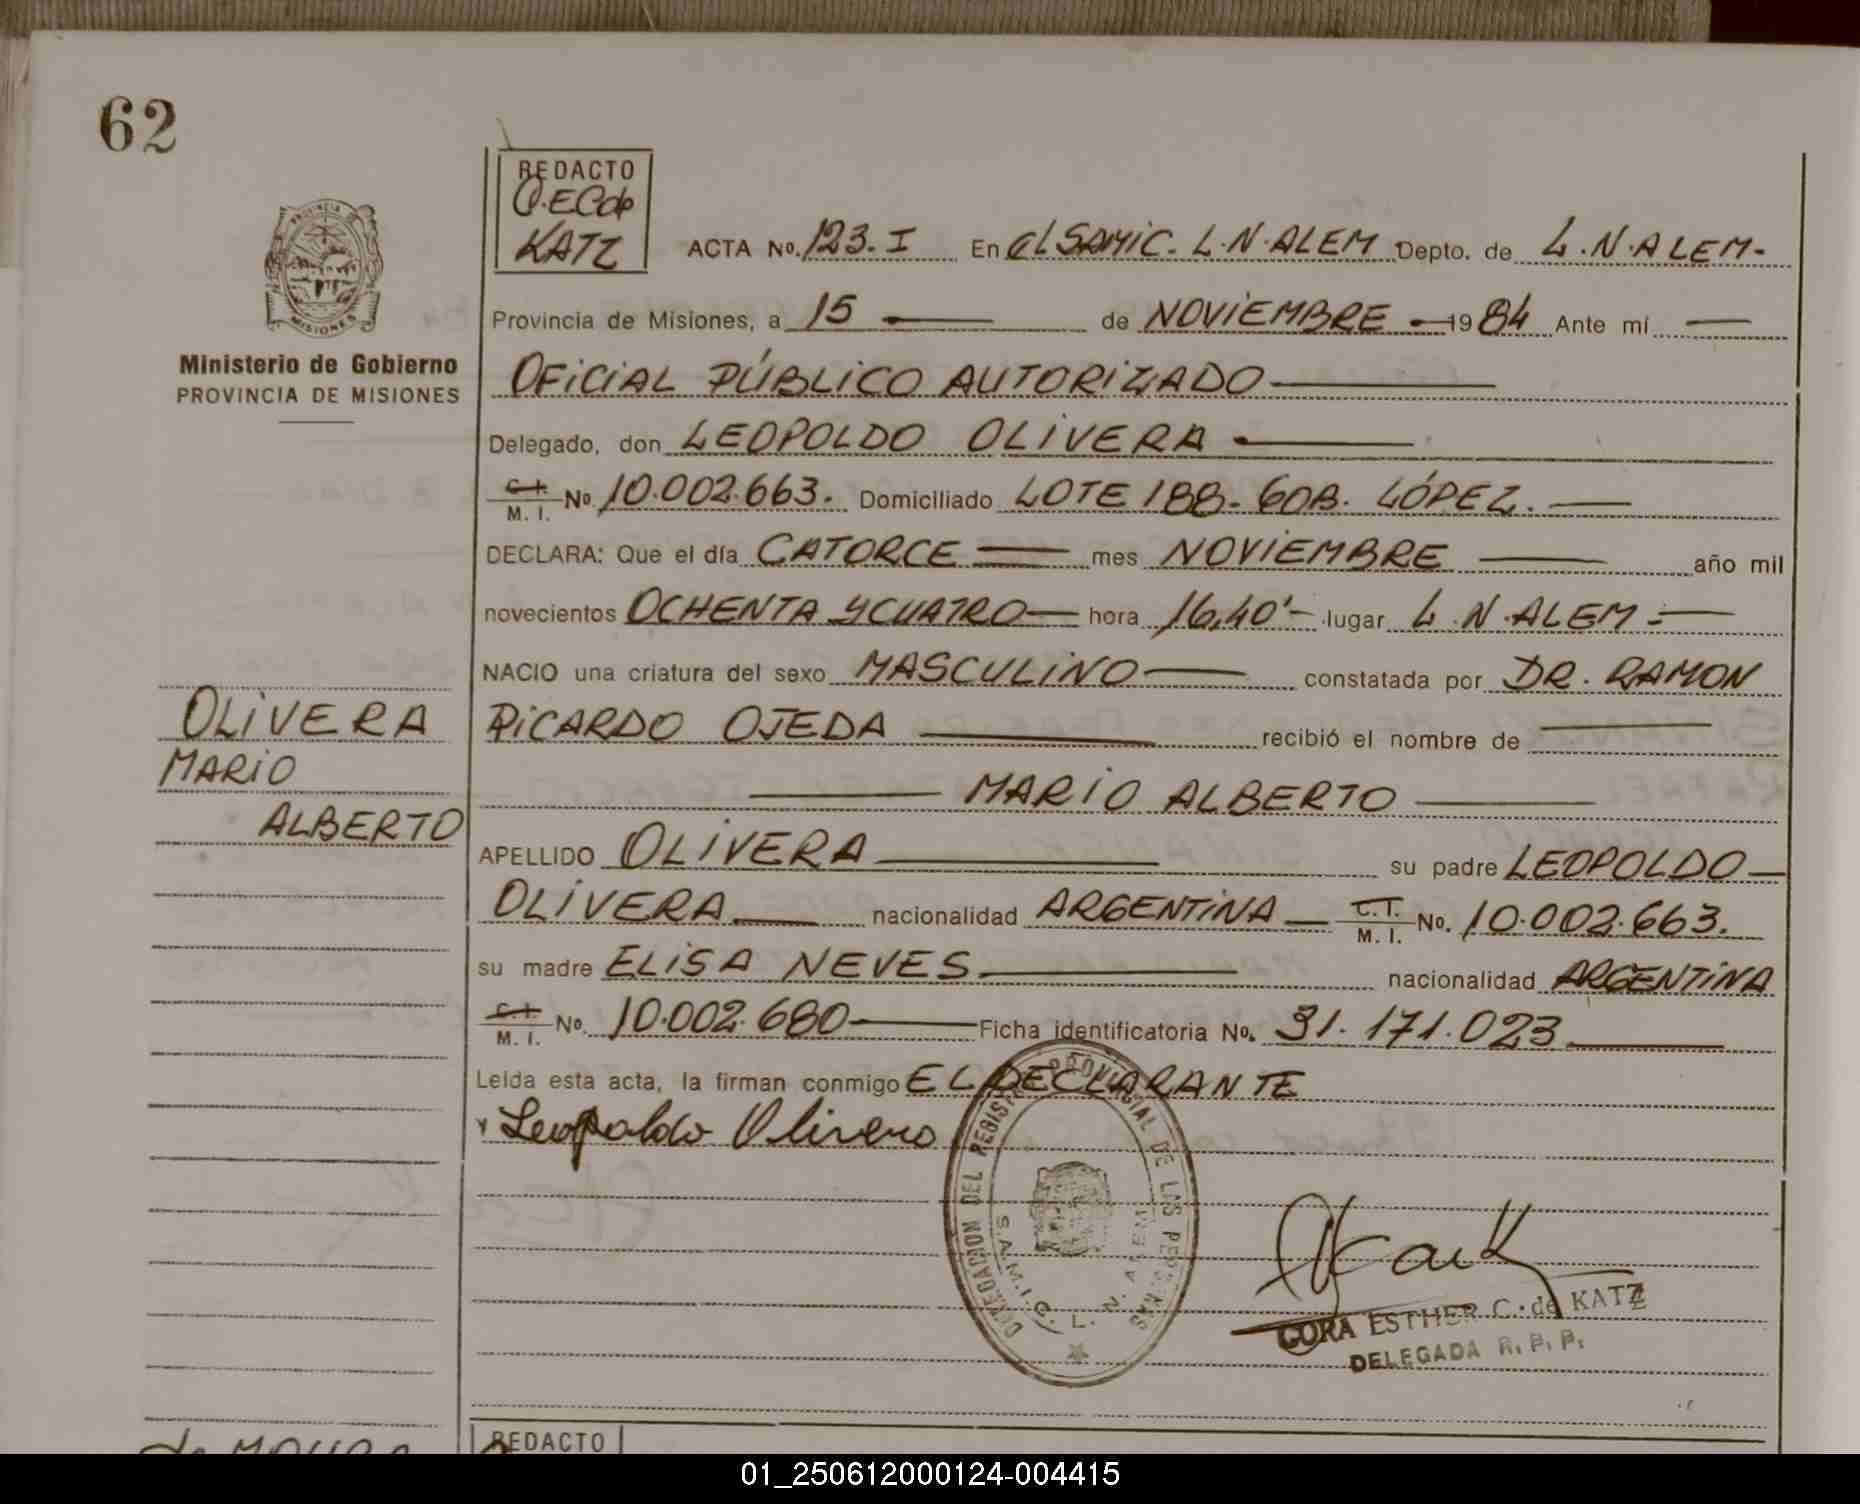 62
REDACTO
KATZ
ACTA No. 123. I En el SAMIC. L.N.ALEM Depto. de L.N.ALEM.
PROVINCIA DE
MISIONES
Ministerio de Gobierno
PROVINCIA DE MISIONES
Provincia de Misiones, a 15 de NOVIEMBRE 1984 Ante mí
OFICIAL PÚBLICO AUTORIZADO
Delegado, don LEOPOLDO OLIVERA
C.I. / M. I. No. 10.002.663. Domiciliado LOTE 188. GOB. LÓPEZ.
DECLARA: Que el día CATORCE mes NOVIEMBRE año mil
novecientos OCHENTA Y CUATRO hora 16,40' lugar L.N.ALEM
NACIO una criatura del sexo MASCULINO constatada por DR. RAMON
RICARDO OJEDA recibió el nombre de
MARIO ALBERTO
OLIVERA
MARIO
ALBERTO
APELLIDO OLIVERA su padre LEOPOLDO
OLIVERA nacionalidad ARGENTINA C.I. / M. I. No. 10.002.663.
su madre ELISA NEVES nacionalidad ARGENTINA
C.I. / M. I. No. 10.002.680 Ficha identificatoria No. 31.171.023
Leída esta acta, la firman conmigo EL DECLARANTE
Leopoldo Olivera
DELEGACION DEL REGISTRO PROVINCIAL DE LAS PERSONAS
S.A.M.I.C. L. N. ALEM
CORA ESTHER C. de KATZ
DELEGADA R. P. P.
REDACTO
01_250612000124-004415